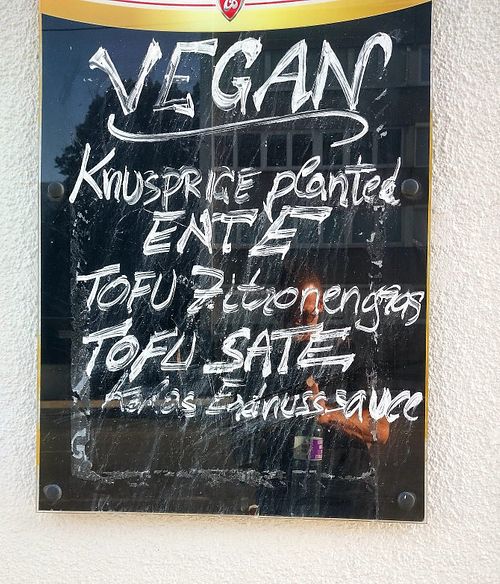 VEGAN
KNUSPRIGE planted
ENTE
TOFU Zitronengras
TOFU SATE
Erdnusssauce